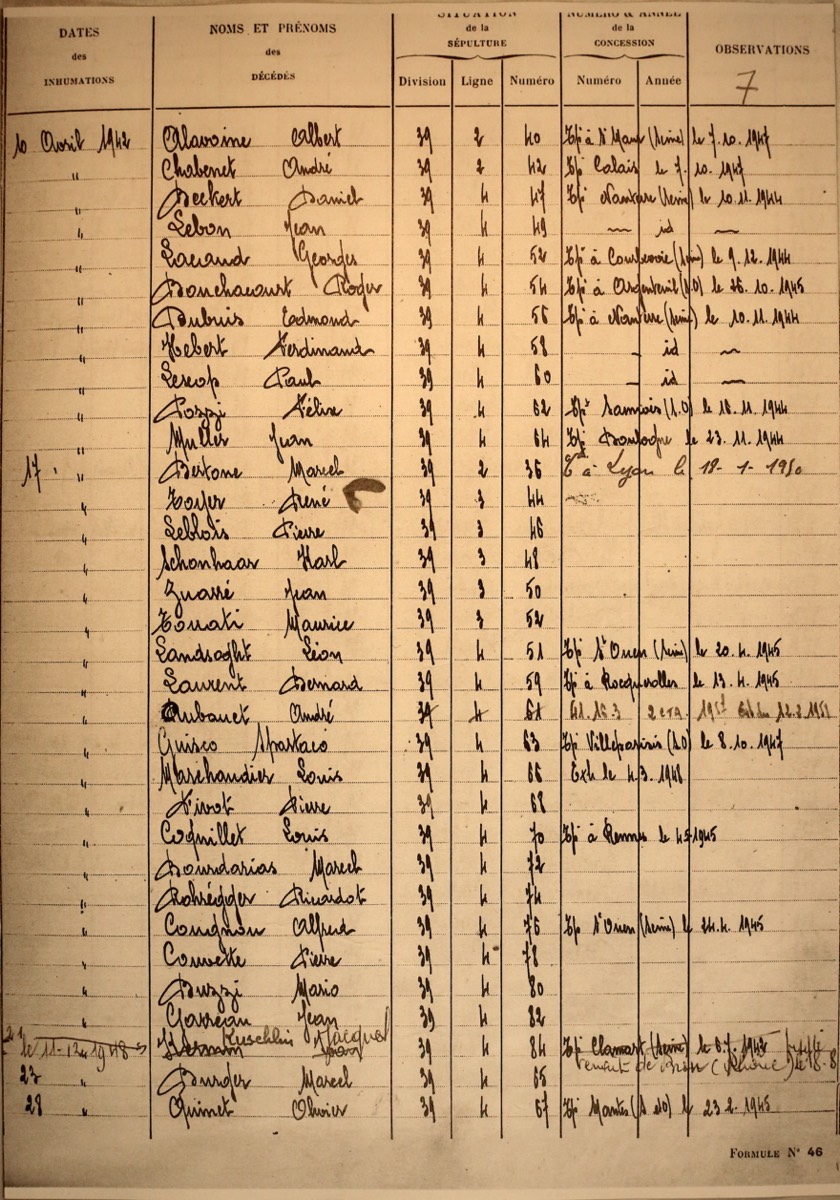 DATES des INHUMATIONS
NOMS ET PRÉNOMS des DÉCÉDÉS
SITUATION de la SÉPULTURE
NUMÉRO & ANNÉE de la CONCESSION
OBSERVATIONS
7
Division Ligne Numéro Numéro Année
10 Avril 1942 Alavoine Albert 39 2 40 Tpé à St Maur (Seine) le 7.10.1947
" Chabenet André 39 2 42 Tpé Calais le 7.10.1947
" Beckert Daniel 39 4 47 Tpé Nanterre (Seine) le 10.11.1944
" Lebon Jean 39 4 49 — id —
" Lacaud Georges 39 4 52 Tpé à Courbevoie (Seine) le 9.12.1944
" Bonchacourt Roger 39 4 54 Tpé à Argenteuil (S.O) le 26.10.1945
" Dubuis Edmond 39 4 56 Tpé à Nanterre (Seine) le 10.11.1944
" Hebert Ferdinand 39 4 58 — id —
" Lescop Paul 39 4 60 — id —
" Pozzi Félix 39 4 62 Tpé Samois (S.O) le 16.11.1944
" Muller Jean 39 4 64 Tpé Boulogne le 23.11.1944
17 " Bertone Marcel 39 2 36 à Lyon le 18-1-1950
" Toyer René 39 3 44
" Leblois Pierre 39 3 46
" Schonhaar Karl 39 3 48
" Quarré Jean 39 3 50
" Touati Maurice 39 3 52
" Landsoght Léon 39 4 51 Tpé St Ouen (Seine) le 20.4.1945
" Laurent Bernard 39 4 59 Tpé à Rocquerolles le 13.4.1945
" Aubouet André 39 4 61 41.16.3
" Guisco Spartaco 39 4 63 Tpé Villeparisis (S.O) le 8.10.1947
" Marchandier Louis 39 4 66 Exh le 4.3.1948
" Tirot Pierre 39 4 68
" Coquillet Louis 39 4 70 Tpé à Rennes le 1945
" Bourdarias Marcel 39 4 72
" Rohregger Ricardot 39 4 74
" Cougnon Alfred 39 4 76 Tpé St Ouen (Seine) le 24.4.1945
" Couvette Pierre 39 4 78
" Buzzi Mario 39 4 80
" Garreau Jean 39 4 82
le 11-12-1948 Kuschlin Jacques 39 4 84 Tpé Clamart (Seine) le 6.7.1942
23 Burger Marcel 39 4 65
28 " Quinet Olivier 39 4 67 Tpé Mantes (S et O) le 23.2.1945
FORMULE N° 46